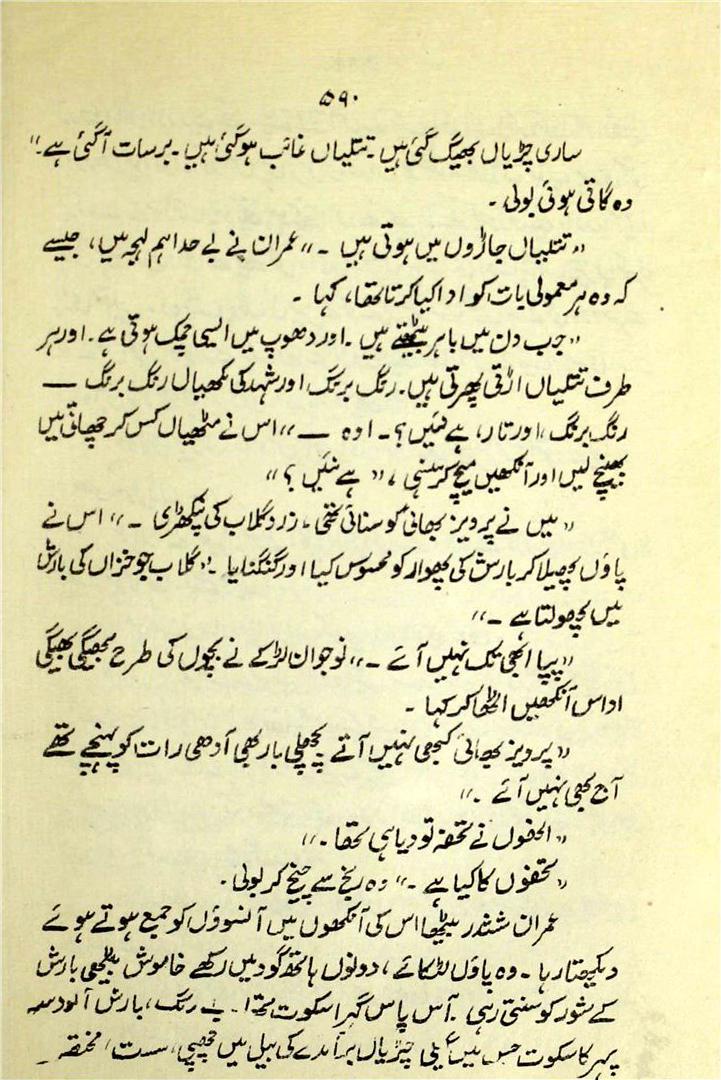 ۵۹۰
ساری چڑیاں بھیگ گئی ہیں ۔ تتلیاں غائب ہوگئی ہیں ۔ برسات آگئی ہے ۔"
وہ گاتی ہوئی بولی ۔
"تتلیاں جاڑوں میں ہوتی ہیں ۔" عمران نے بے حد اہم لہجہ میں، جیسے
کہ وہ ہر معمولی بات کو ادا کیا کرتا تھا، کہا ۔
"جب دن میں باہر بیٹھتے ہیں ۔ اور دھوپ میں ایسی چمک ہوتی ہے ۔ اور ہر
طرف تتلیاں اڑتی پھرتی ہیں ۔ رنگ برنگ اور شہد کی مکھیاں رنگ برنگ ——
رنگ برنگ ، اور تار، ہے نئیں ؟ ۔ اوہ —" اس نے مٹھیاں کس کر چھاتی میں
بھینچ لیں اور آنکھیں میچ کر ہنسی ، "ہے نئیں ؟"
"میں نے پرویز بھائی کو سنائی تھی ۔ زرد گلاب کی پنکھڑی ۔" اس نے
پاؤں پھیلا کر بارش کی پھوار کو محسوس کیا اور گنگنایا ۔ "گلاب جو خزاں کی بارش
میں پھولتا ہے ۔"
"پپا ابھی تک نہیں آئے ۔" نوجوان لڑکے نے بچوں کی طرح بھیگی بھیگی
اداس آنکھیں اٹھا کر کہا ۔
"پرویز بھائی کبھی نہیں آتے پچھلی بار بھی آدھی رات کو پہنچے تھے
آج بھی نہیں آئے ۔"
"انھوں نے تحفہ تو دیا ہی تھا ۔"
"تحفوں کا کیا ہے ۔" وہ رنج سے چیخ کر بولی ۔
عمران ششدر بیٹھا اس کی آنکھوں میں آنسوؤں کو جمع ہوتے ہوئے
دیکھتا رہا ۔ وہ پاؤں لٹکائے ، دونوں ہاتھ گود میں رکھے خاموش بیٹھی بارش
کے شور کو سنتی رہی ۔ آس پاس گہرا سکوت تھا ۔ بے رنگ، بارش آلود سہ
پہر کا سکوت جس میں گیلی چڑیاں برآمدے کی بیل میں چھپی، سست، مختصر ۔